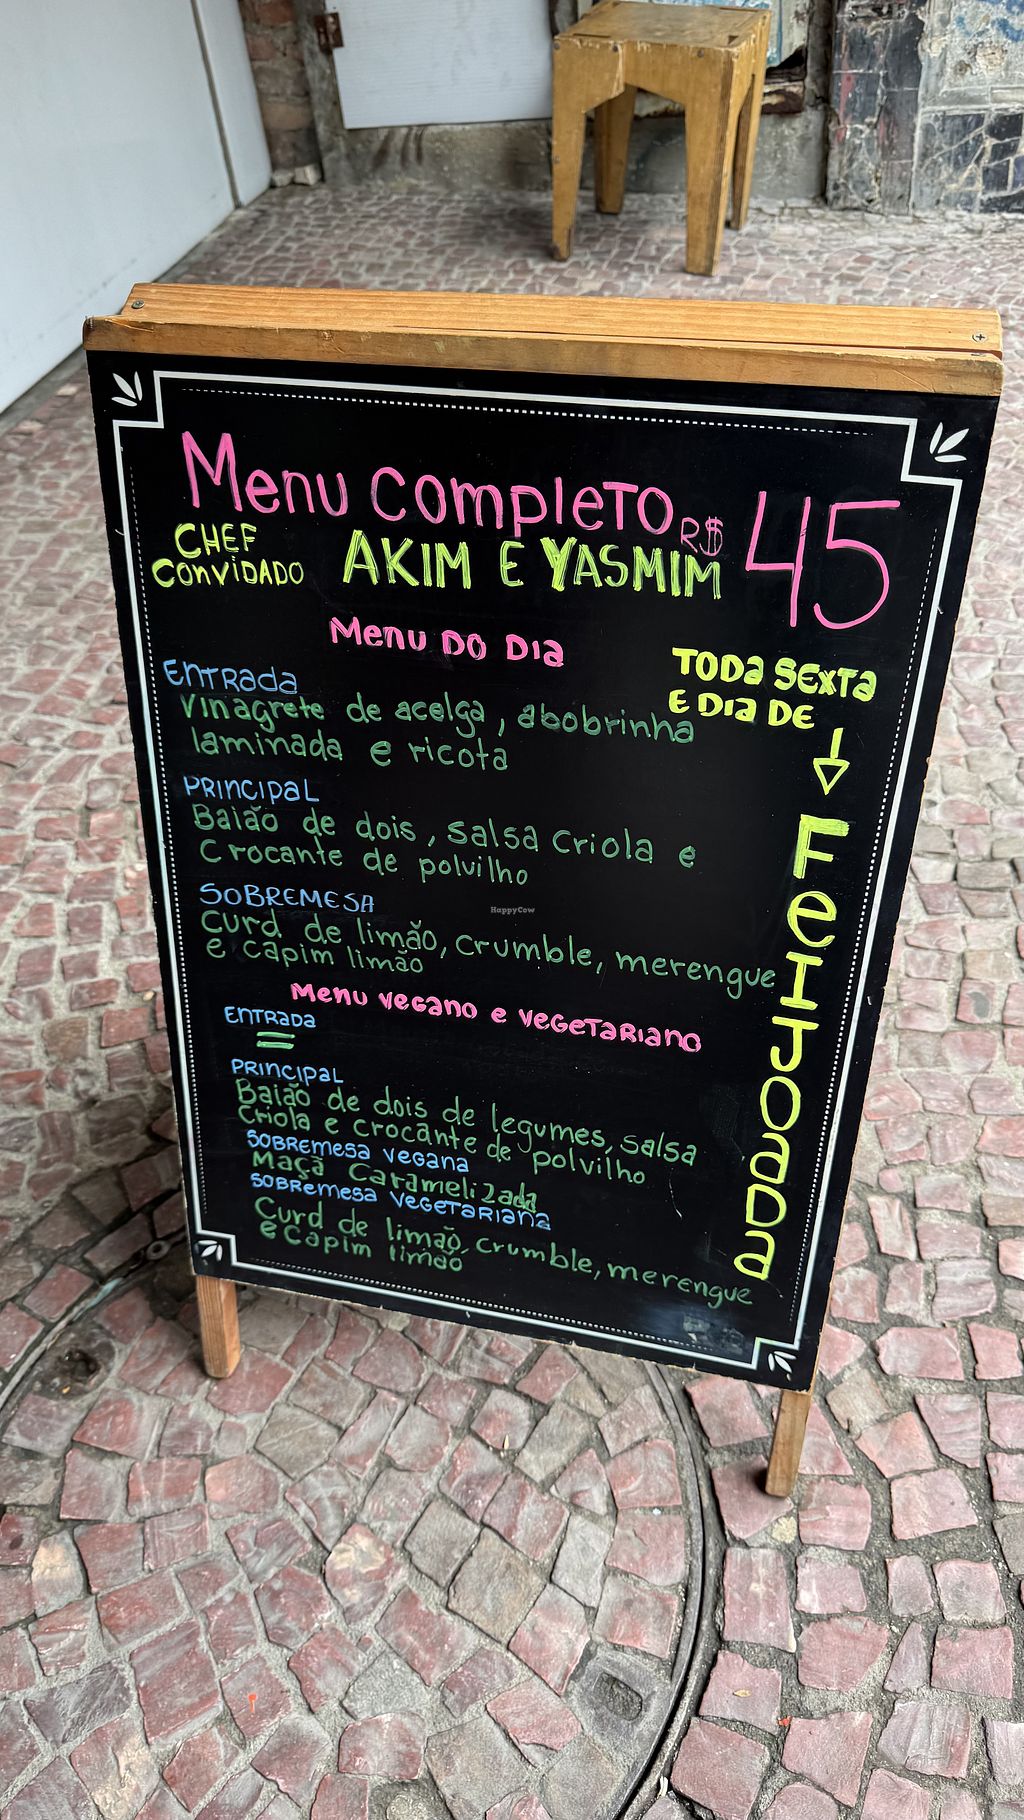 Menu Completo R$ 45
CHEF
CONVIDADO
AKIM E YASMIM
Menu DO DIA
TODA SEXTA
E DIA DE
FEIJOADA
ENTRADA
Vinagrete de acelga, abobrinha
laminada e ricota
PRINCIPAL
Baião de dois, salsa criola e
Crocante de polvilho
SOBREMESA
Curd de limão, crumble, merengue
e capim limão
Menu VEGANO e VEGETARIANO
ENTRADA
=
PRINCIPAL
Baião de dois de legumes, salsa
Criola e crocante de polvilho
SOBREMESA VEGANA
Maçã Caramelizada
SOBREMESA VEGETARIANA
Curd de limão, crumble, merengue
e capim limão
HappyCow